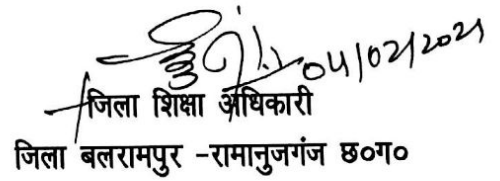 04/02/2021
जिला शिक्षा अधिकारी
जिला बलरामपुर -रामानुजगंज छ०ग०